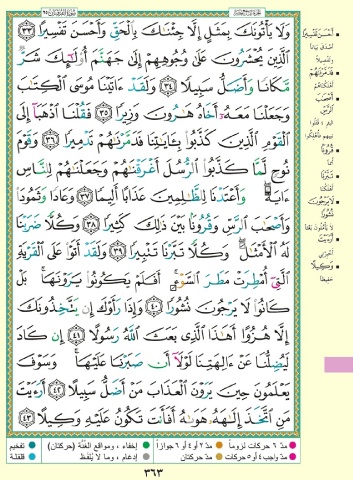 وَلَا يَأْتُونَكَ بِمَثَلٍ إِلَّا جِئْنَٰكَ بِٱلْحَقِّ وَأَحْسَنَ تَفْسِيرًا ٣٣
ٱلَّذِينَ يُحْشَرُونَ عَلَىٰ وُجُوهِهِمْ إِلَىٰ جَهَنَّمَ أُو۟لَٰٓئِكَ شَرٌّ
مَّكَانًا وَأَضَلُّ سَبِيلًا ٣٤ وَلَقَدْ ءَاتَيْنَا مُوسَى ٱلْكِتَٰبَ
وَجَعَلْنَا مَعَهُۥٓ أَخَاهُ هَٰرُونَ وَزِيرًا ٣٥ فَقُلْنَا ٱذْهَبَآ إِلَى
ٱلْقَوْمِ ٱلَّذِينَ كَذَّبُوا۟ بِـَٔايَٰتِنَا فَدَمَّرْنَٰهُمْ تَدْمِيرًا ٣٦ وَقَوْمَ
نُوحٍ لَّمَّا كَذَّبُوا۟ ٱلرُّسُلَ أَغْرَقْنَٰهُمْ وَجَعَلْنَٰهُمْ لِلنَّاسِ
ءَايَةً وَأَعْتَدْنَا لِلظَّٰلِمِينَ عَذَابًا أَلِيمًا ٣٧ وَعَادًا وَثَمُودَا۟
وَأَصْحَٰبَ ٱلرَّسِّ وَقُرُونًۢا بَيْنَ ذَٰلِكَ كَثِيرًا ٣٨ وَكُلًّا ضَرَبْنَا
لَهُ ٱلْأَمْثَٰلَ وَكُلًّا تَبَّرْنَا تَتْبِيرًا ٣٩ وَلَقَدْ أَتَوْا۟ عَلَى ٱلْقَرْيَةِ
ٱلَّتِىٓ أُمْطِرَتْ مَطَرَ ٱلسَّوْءِ أَفَلَمْ يَكُونُوا۟ يَرَوْنَهَا بَلْ
كَانُوا۟ لَا يَرْجُونَ نُشُورًا ٤٠ وَإِذَا رَأَوْكَ إِن يَتَّخِذُونَكَ
إِلَّا هُزُوًا أَهَٰذَا ٱلَّذِى بَعَثَ ٱللَّهُ رَسُولًا ٤١ إِن كَادَ
لَيُضِلُّنَا عَنْ ءَالِهَتِنَا لَوْلَآ أَن صَبَرْنَا عَلَيْهَا وَسَوْفَ
يَعْلَمُونَ حِينَ يَرَوْنَ ٱلْعَذَابَ مَنْ أَضَلُّ سَبِيلًا ٤٢ أَرَءَيْتَ
مَنِ ٱتَّخَذَ إِلَٰهَهُۥ هَوَىٰهُ أَفَأَنتَ تَكُونُ عَلَيْهِ وَكِيلًا ٤٣
أَحْسَنَ تَفْسِيرًا
فَدَمَّرْنَاهُمْ
أَصْحَابَ
الرَّسِّ
قُرُونًا
تَبَّرْنَا
أهلكنا
لَا يَرْجُونَ
نُشُورًا
أَرَأَيْتَ
أخبرني
وَكِيلًا
حفيظاً
مدّ ٦ حركات لزوماً
مدّ ٢ أو ٤ أو ٦ جوازاً
إخفاء، ومواقع الغُنَّة (حركتان)
تفخيم
مدّ واجب ٤ أو ٥ حركات
مدّ حركتان
إدغام، وما لا يُلفَظ
قلقلة
٣٦٣